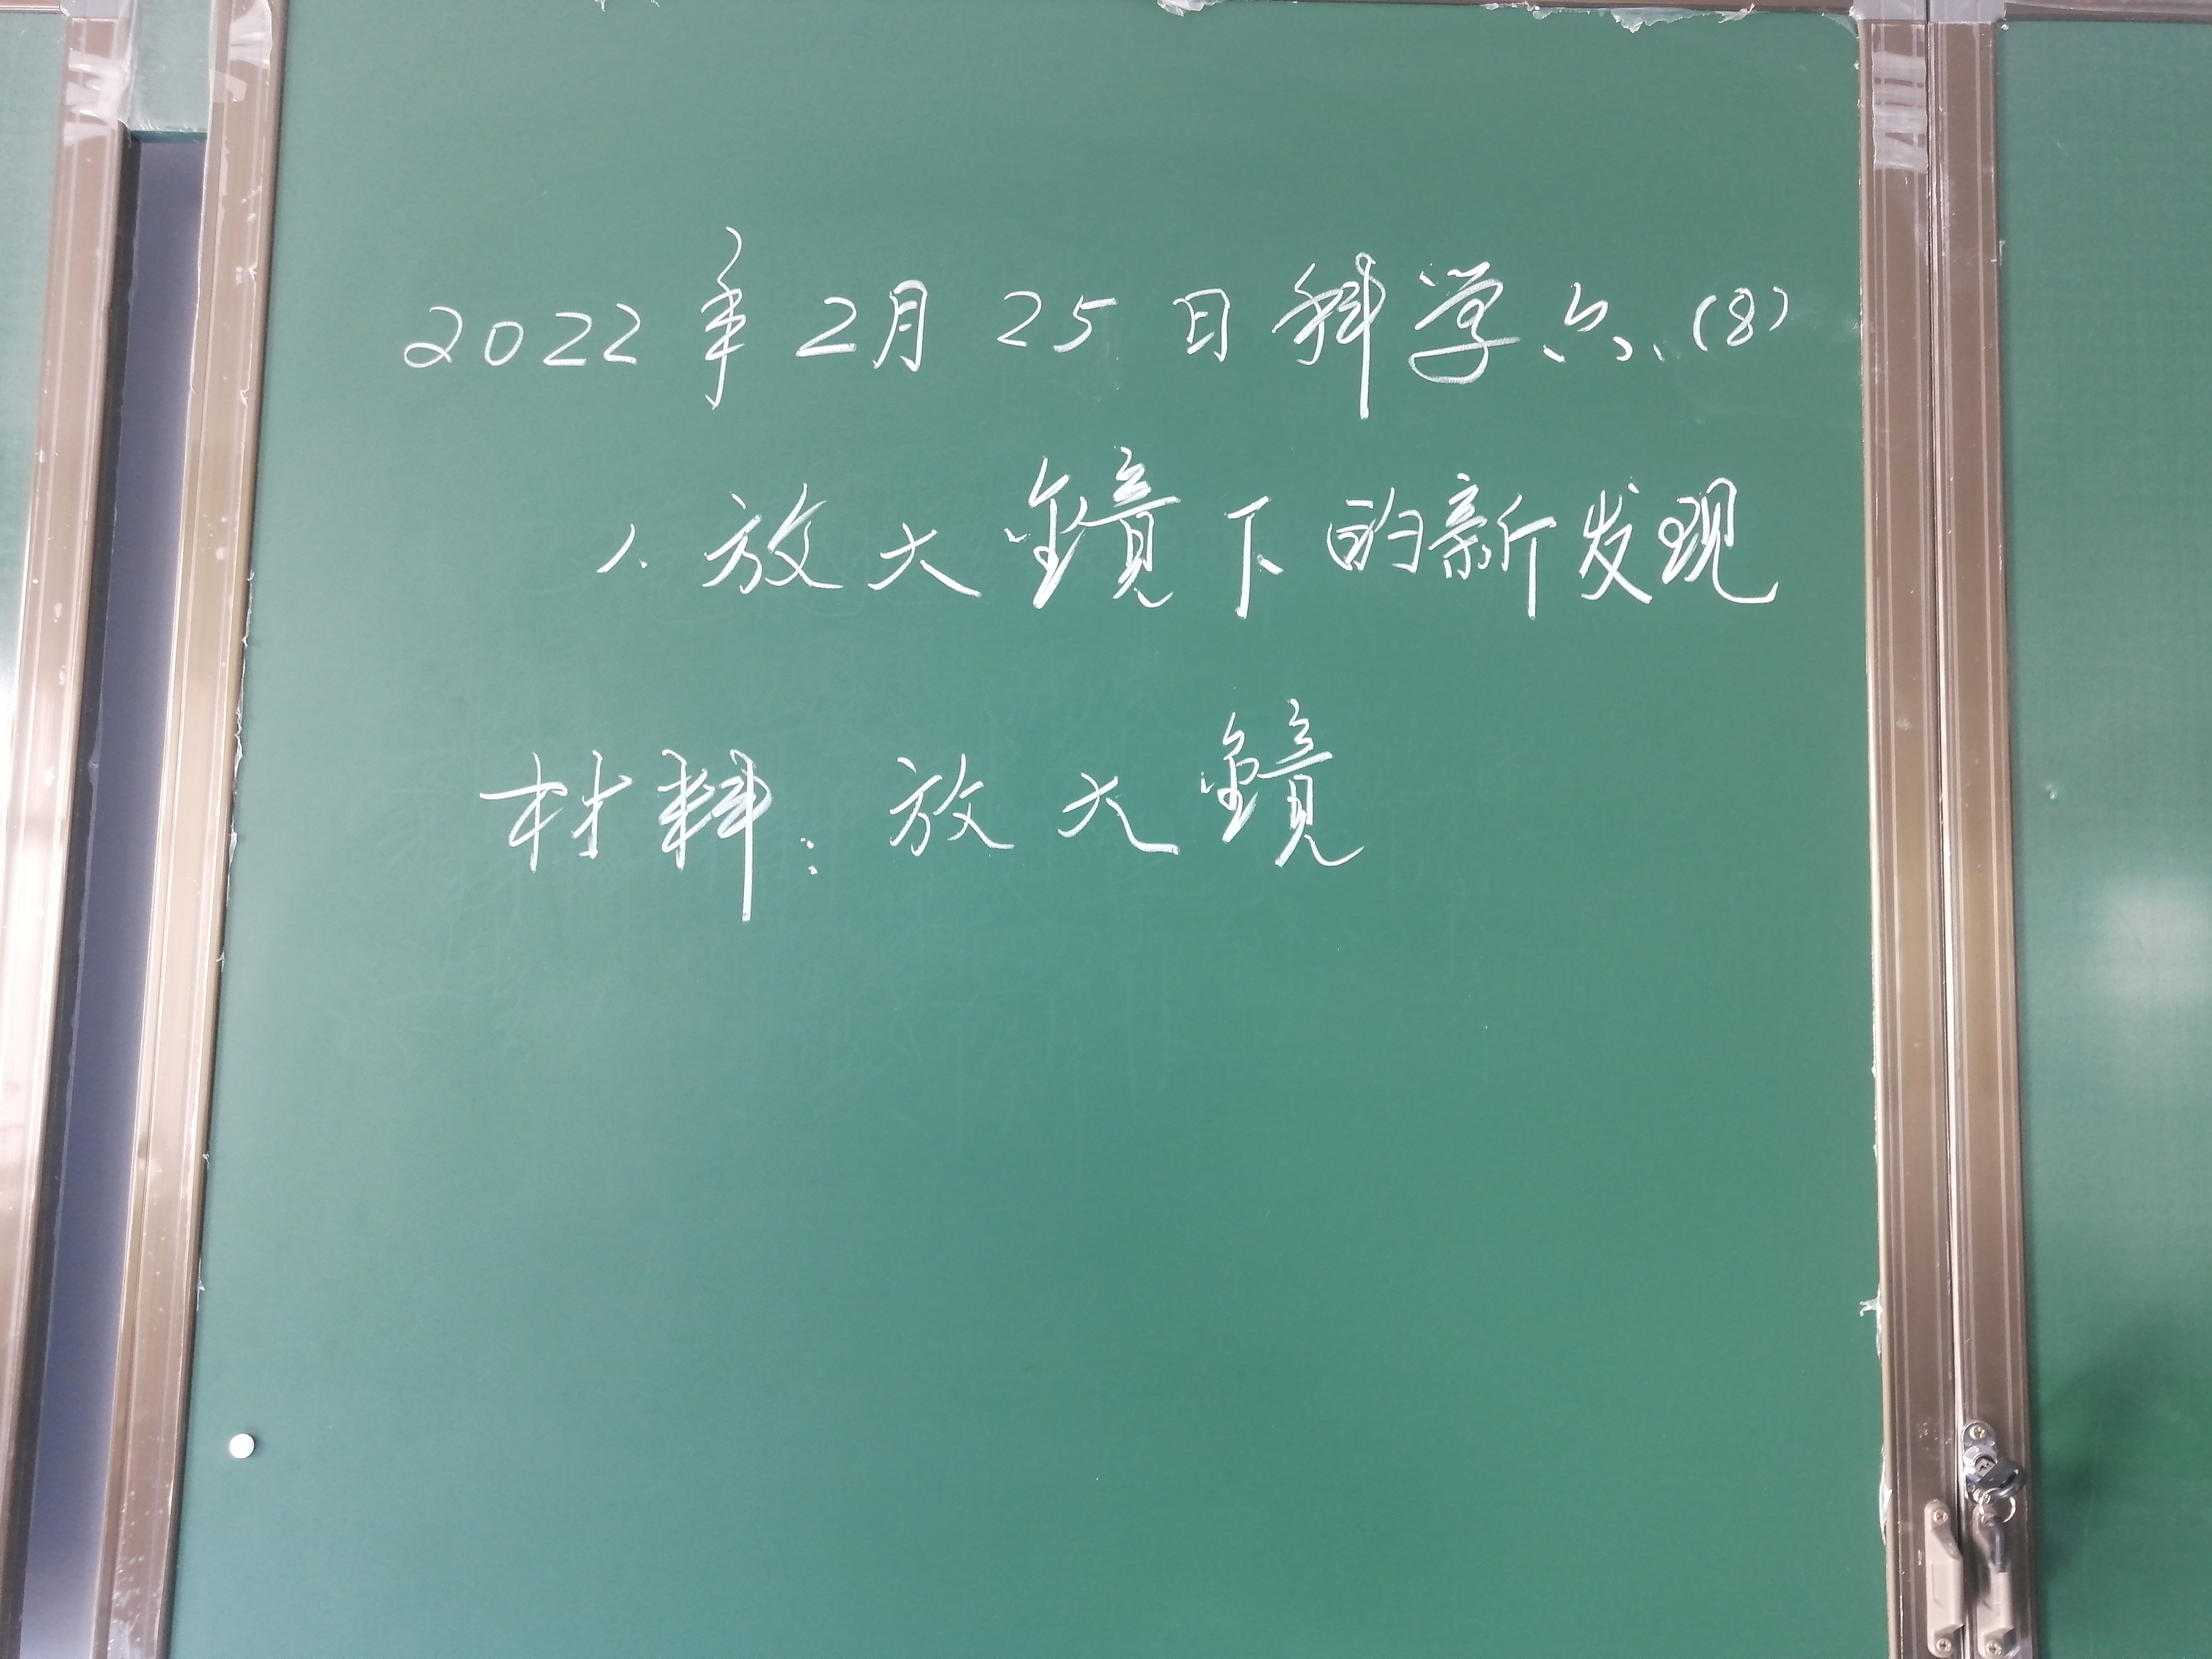 2022年2月25日科学六.(8)
1.放大鏡下的新发现
材料:放大鏡